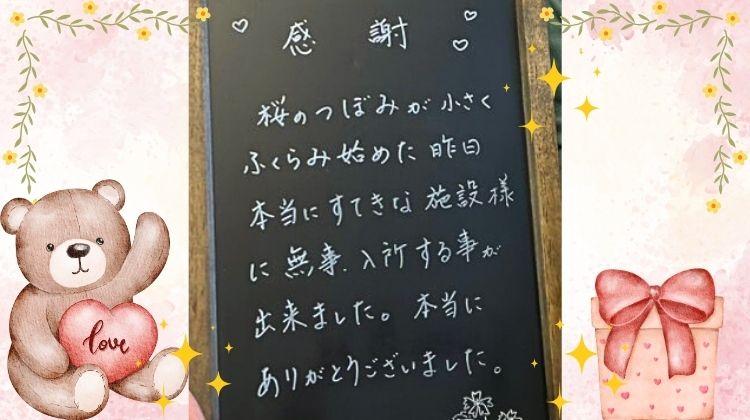 感謝
桜のつぼみが小さく
ふくらみ始めた昨日
本当にすてきな施設様
に無事、入所する事が
出来ました。本当に
ありがとうございました。
love